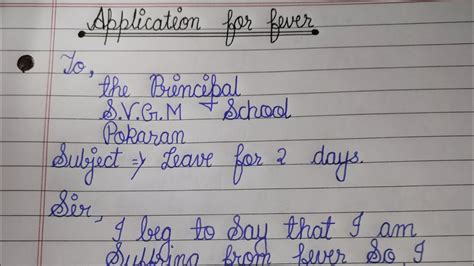 Application for fever
To,
the Principal
S.V.G.M School
Pokaran
Subject => Leave for 2 days.
Sir,
I beg to say that I am
Suffring from fever So, I